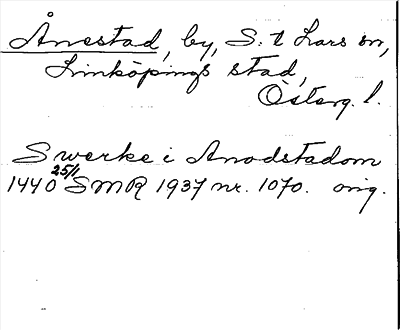 Ånestad, by, S:t Lars sn,
Linköpings stad,
Österg. l.
Swerke i Anodstadom
1440 25/1 SMR 1937 nr. 1070. orig.